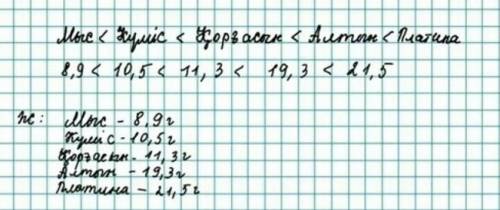 Мыс < Күміс < Қорғасын < Алтын < Платина
8,9 < 10,5 < 11,3 < 19,3 < 21,5
Мыс - 8,9 г
Күміс - 10,5 г
Қорғасын - 11,3 г
Алтын - 19,3 г
Платина - 21,5 г